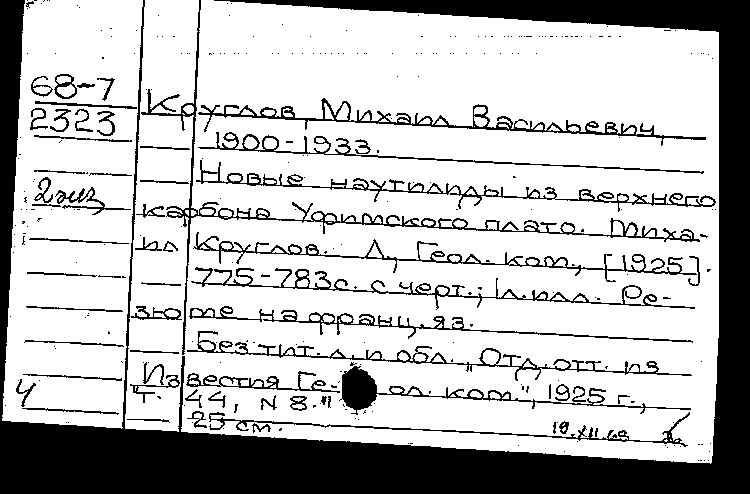 68-7
2323
Круглов, Михаил Васильевич,
1900-1933.
Новые наутилиды из верхнего
2 экз
карбона Уфимского плато. Миха-
ил Круглов. Л., Геол. ком., [1925].
775-783с. с черт.; 1л. илл. Ре-
зюме на франц. яз.
Без тит. л. и обл. "Отд. отт. из
Известия Ге- ол. ком.", 1925 г.,
т. 44, N 8."
25 см.
4
19.XII.68